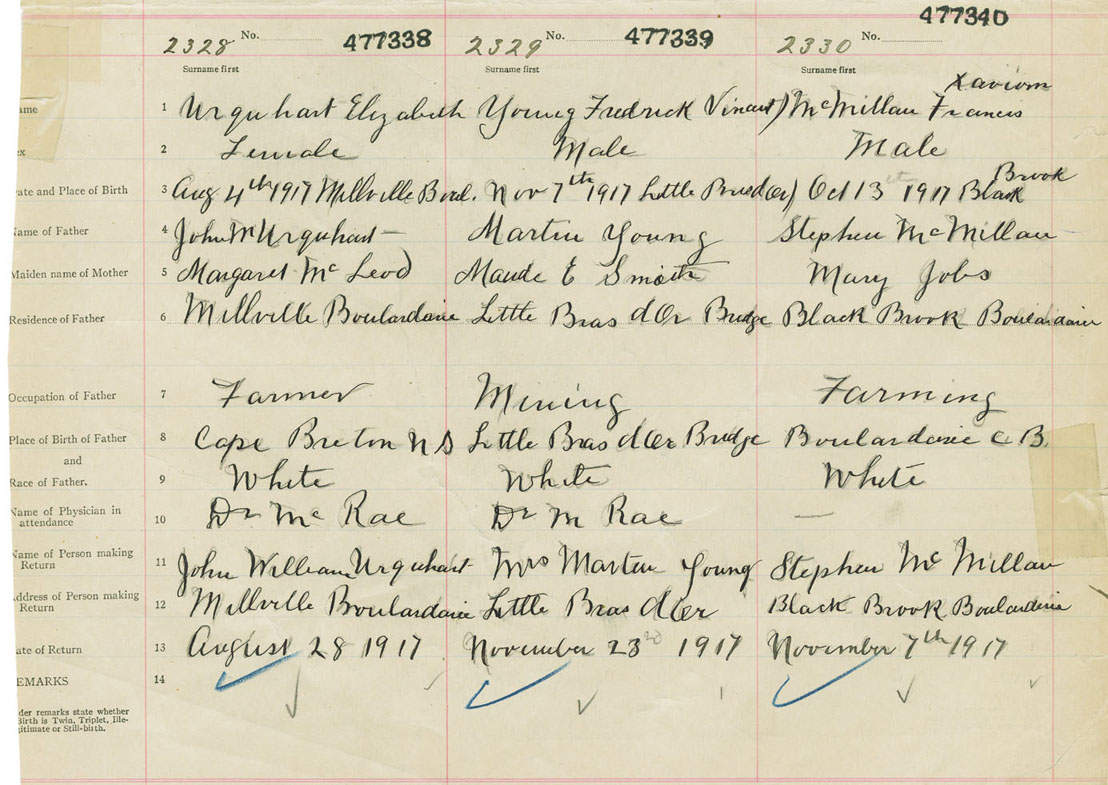 2328 No. 477338 2329 No. 477339 2330 No. 477340
Surname first Surname first Surname first
Xaviom
ame 1 Urquhart Elizabeth Young Fredrick Vincent) McMillan Francis
ex 2 Female Male Male
Brook
ate and Place of Birth 3 Aug 4th 1917 Millville Boul. Nov 7th 1917 Little Brasdor) Oct 13th 1917 Black
Name of Father 4 John M Urquhart Martin Young Stephen McMillan
Maiden name of Mother 5 Margaret McLeod Maude E Smith Mary Jobs
Residence of Father 6 Millville Boulardarie Little Bras d'Or Bridge Black Brook Boulardarie
Occupation of Father 7 Farmer Mining Farming
Place of Birth of Father 8 Cape Breton N S Little Bras d'Or Bridge Boulardarie C B.
and
Race of Father. 9 White White White
Name of Physician in
attendance 10 Dr Mc Rae Dr M Rae —
Name of Person making
Return 11 John William Urquhart Mrs Martin Young Stephen Mc Millan
Address of Person making
Return 12 Millville Boulardarie Little Bras d'Or Black Brook Boulardarie
ate of Return 13 August 28 1917 November 23rd 1917 November 7th 1917
EMARKS 14
der remarks state whether
Birth is Twin, Triplet, Ille-
gitimate or Still-birth.